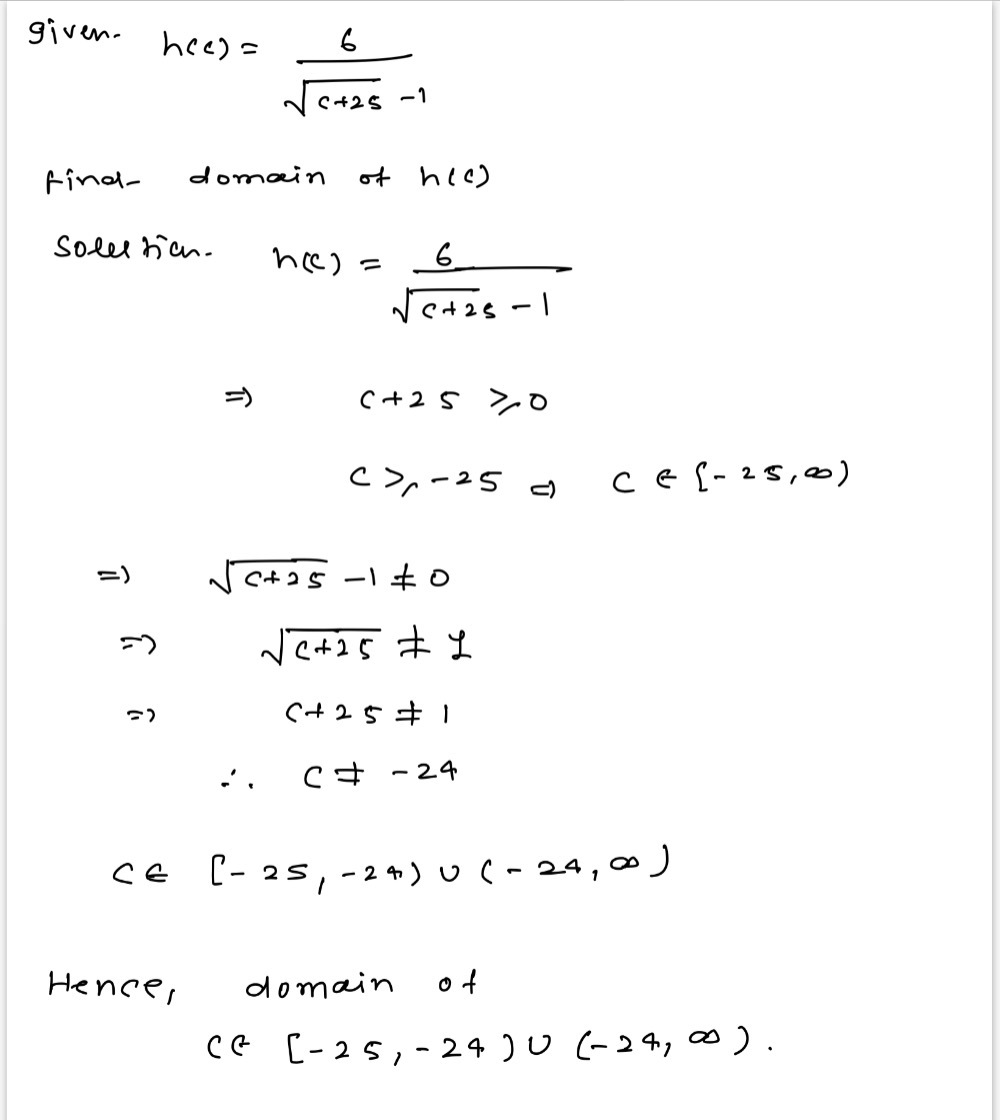 given. h(c) = 6 / √(c+25) -1
find- domain of h(c)
Solution. h(c) = 6 / √(c+25) - 1
⇒ c+25 ≥ 0
c ≥ -25 ⇒ c ∈ [-25, ∞)
⇒ √(c+25) -1 ≠ 0
⇒ √(c+25) ≠ 1
⇒ c+25 ≠ 1
∴ c ≠ -24
c ∈ [-25, -24) ∪ (-24, ∞)
Hence, domain of
c ∈ [-25, -24) ∪ (-24, ∞).